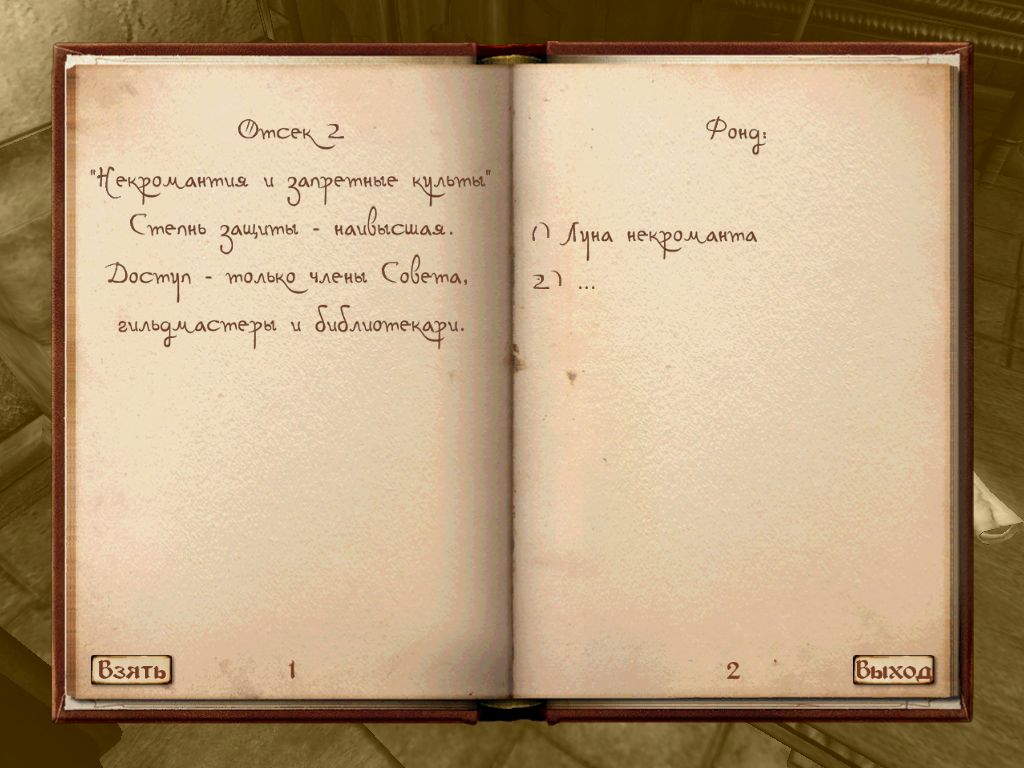 Отсек 2
"Некромантия и запретные культы"
Степнь защиты - наивысшая.
Доступ - только члены Совета,
гильдмастеры и библиотекари.
Фонд:
1) Луна некроманта
2) ...
Взять
1
2
Выход